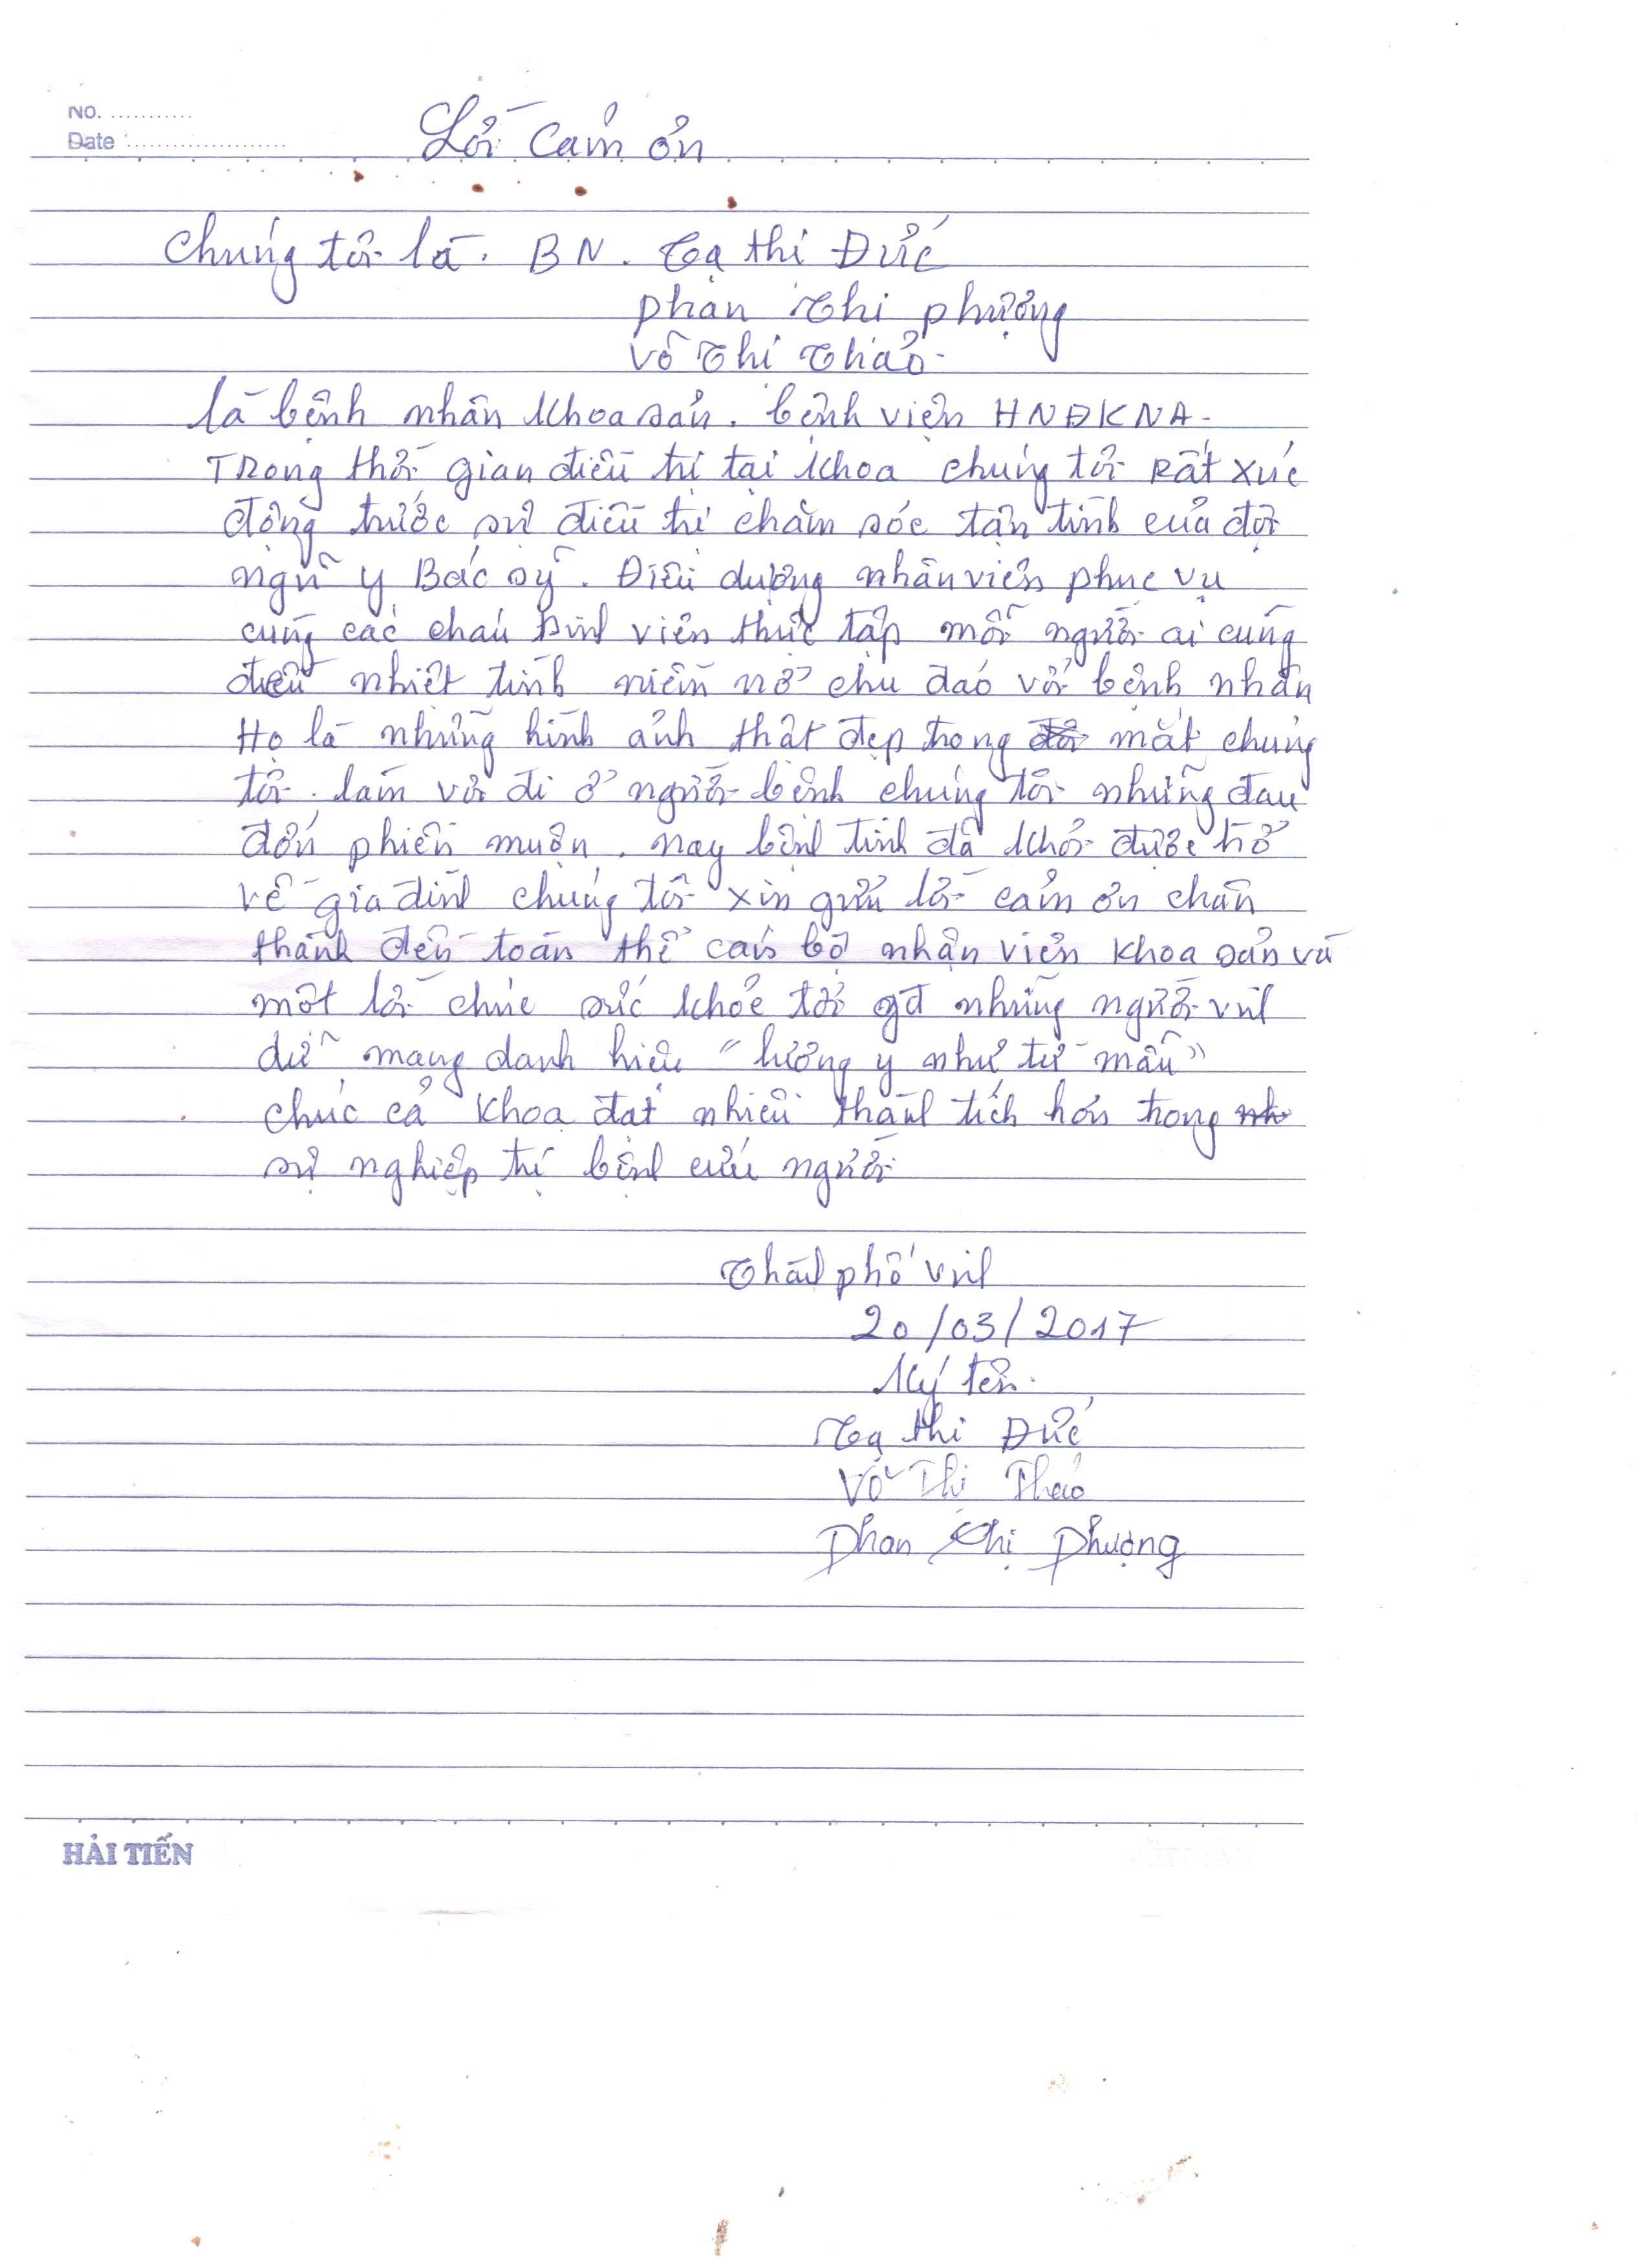 No. ............
Date ......................
Lời cảm ơn
Chúng tôi là. BN. Tạ thị Đức
Phan Thị Phượng
Võ Thị Thảo
là bệnh nhân khoa sản. bệnh viện HNĐKNA.
Trong thời gian điều trị tại khoa chúng tôi Rất xúc
động trước sự điều trị chăm sóc tận tình của đội
ngũ y Bác sỹ. Điều dưỡng nhân viên phục vụ
cùng các cháu sinh viên thực tập mỗi người ai cũng
đều nhiệt tình niềm nở chu đáo với bệnh nhân
Họ là những hình ảnh thật đẹp trong mắt chúng
tôi. làm vơi đi ở người bệnh chúng tôi những đau
đớn phiền muộn. nay bệnh tình đã khỏi được trở
về gia đình chúng tôi xin gửi lời cảm ơn chân
thành đến toàn thể cán bộ nhân viên khoa sản và
một lời chúc sức khỏe tới những người vinh
dự mang danh hiệu "lương y như từ mẫu"
chúc cả khoa đạt nhiều thành tích hơn trong
sự nghiệp trị bệnh cứu người
Thành phố Vinh
20/03/2017
Ký tên
Tạ thị Đức
Võ Thị Thảo
Phan Thị Phượng
HẢI TIẾN